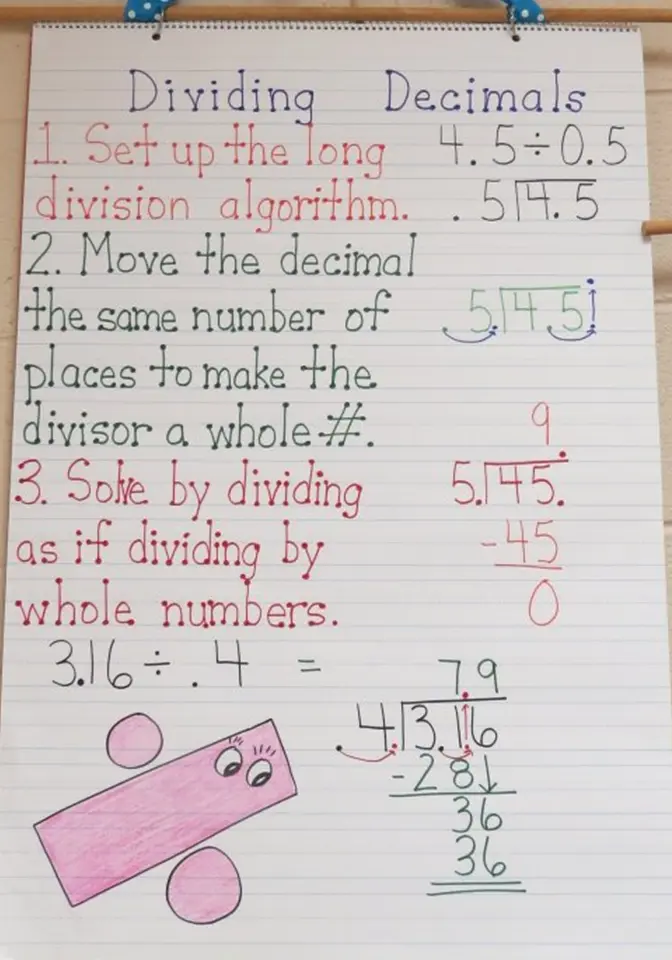 Dividing Decimals
1. Set up the long 4.5÷0.5
division algorithm. .5⟌4.5
2. Move the decimal
the same number of .5.⟌4.5.
places to make the
divisor a whole #. 9.
3. Solve by dividing 5.⟌45.
as if dividing by -45
whole numbers. 0
3.16 ÷ .4 = 7.9
.4.⟌3.1.6
-28↓
36
36